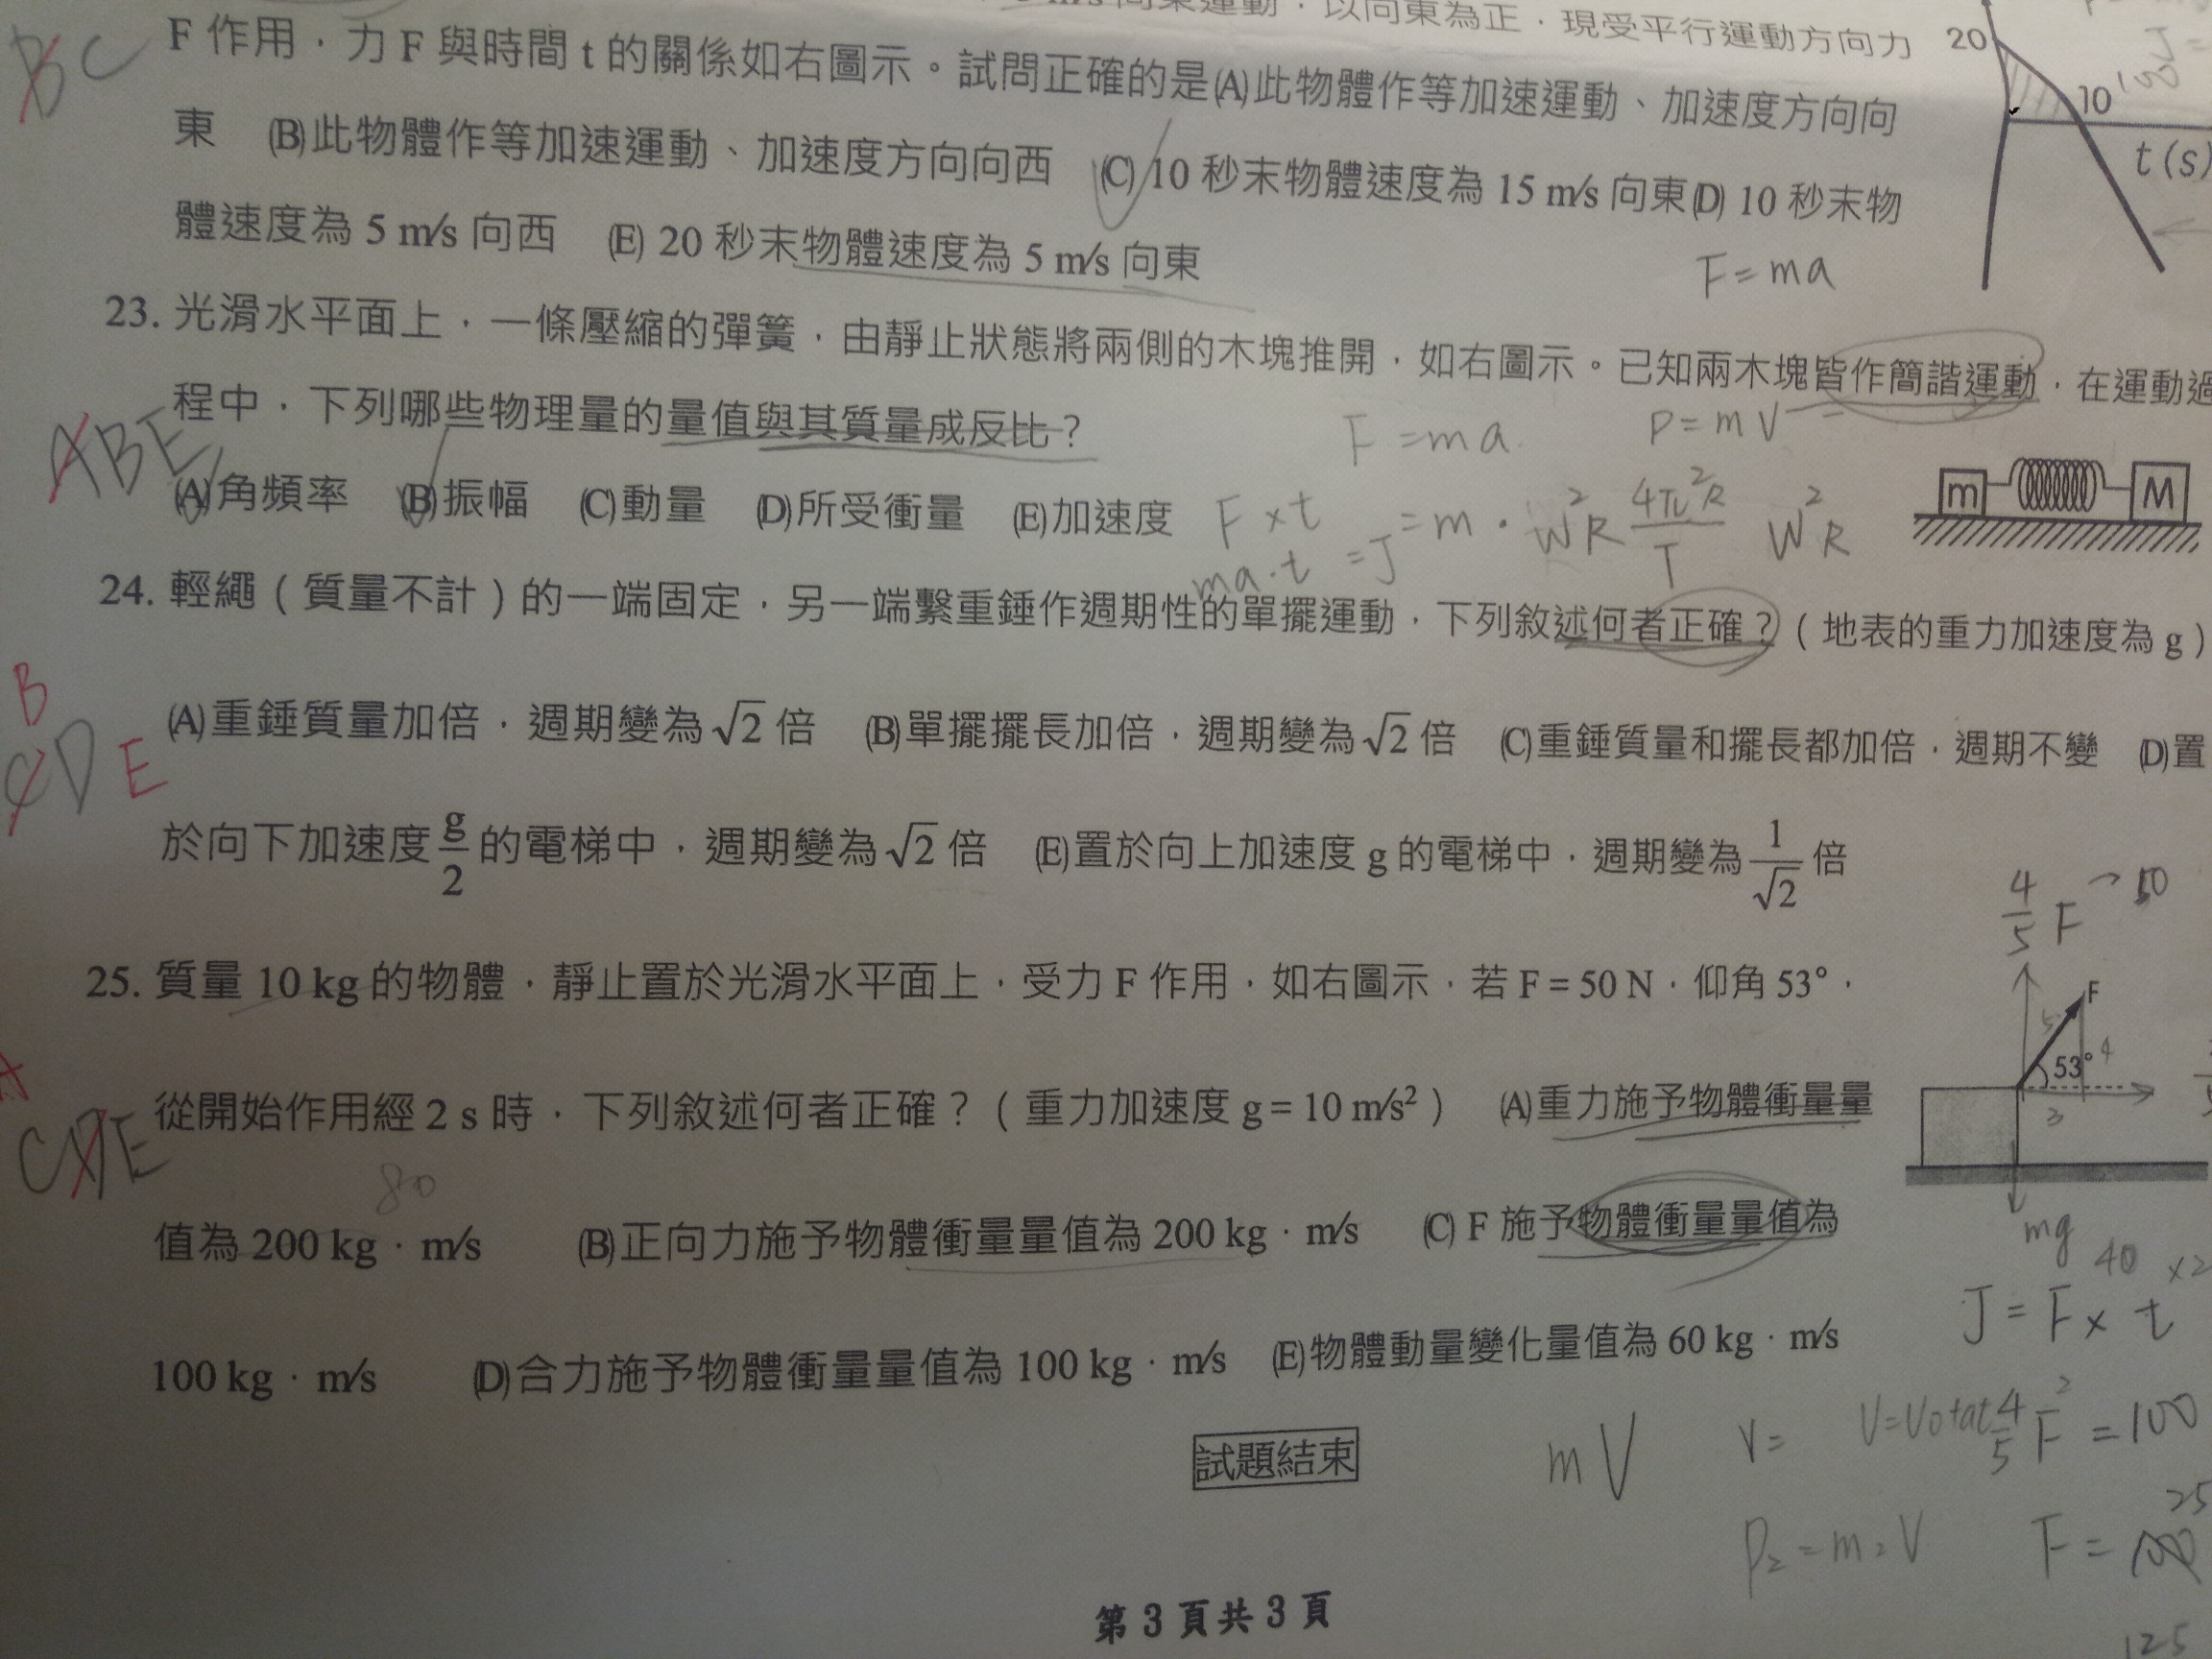 m/s 向東運動，以向東為正，現受平行運動方向力
F 作用，力 F 與時間 t 的關係如右圖示。試問正確的是(A)此物體作等加速運動、加速度方向向
東 (B)此物體作等加速運動、加速度方向向西 (C) 10 秒末物體速度為 15 m/s 向東(D) 10 秒末物
體速度為 5 m/s 向西 (E) 20 秒末物體速度為 5 m/s 向東
BC
20
10
100
J=
t(s)
F=ma
23. 光滑水平面上，一條壓縮的彈簧，由靜止狀態將兩側的木塊推開，如右圖示。已知兩木塊皆作簡諧運動，在運動過
程中，下列哪些物理量的量值與其質量成反比？
(A)角頻率 (B)振幅 (C)動量 (D)所受衝量 (E)加速度
ABE
F=ma.
P=mV
F×t
ma·t = J
=m·W²R 4π²R/T W²R
m M
24. 輕繩（質量不計）的一端固定，另一端繫重錘作週期性的單擺運動，下列敘述何者正確？（地表的重力加速度為 g）
(A)重錘質量加倍，週期變為√2 倍 (B)單擺擺長加倍，週期變為√2 倍 (C)重錘質量和擺長都加倍，週期不變 (D)置
於向下加速度 g/2 的電梯中，週期變為√2 倍 (E)置於向上加速度 g 的電梯中，週期變為 1/√2 倍
B
CD E
25. 質量 10 kg 的物體，靜止置於光滑水平面上，受力 F 作用，如右圖示，若 F = 50 N，仰角 53°，
從開始作用經 2 s 時，下列敘述何者正確？（重力加速度 g = 10 m/s²） (A)重力施予物體衝量量
值為 200 kg · m/s (B)正向力施予物體衝量量值為 200 kg · m/s (C) F 施予物體衝量量值為
100 kg · m/s (D)合力施予物體衝量量值為 100 kg · m/s (E)物體動量變化量值為 60 kg · m/s
A
CDE
80
4/5 F → 50
F
5
4
53°
3
mg
40 ×2
J=F×t
試題結束
mV
V=
V=V0+at
4/5 F = 100
P2=m2V
25
F=100
125
第 3 頁共 3 頁